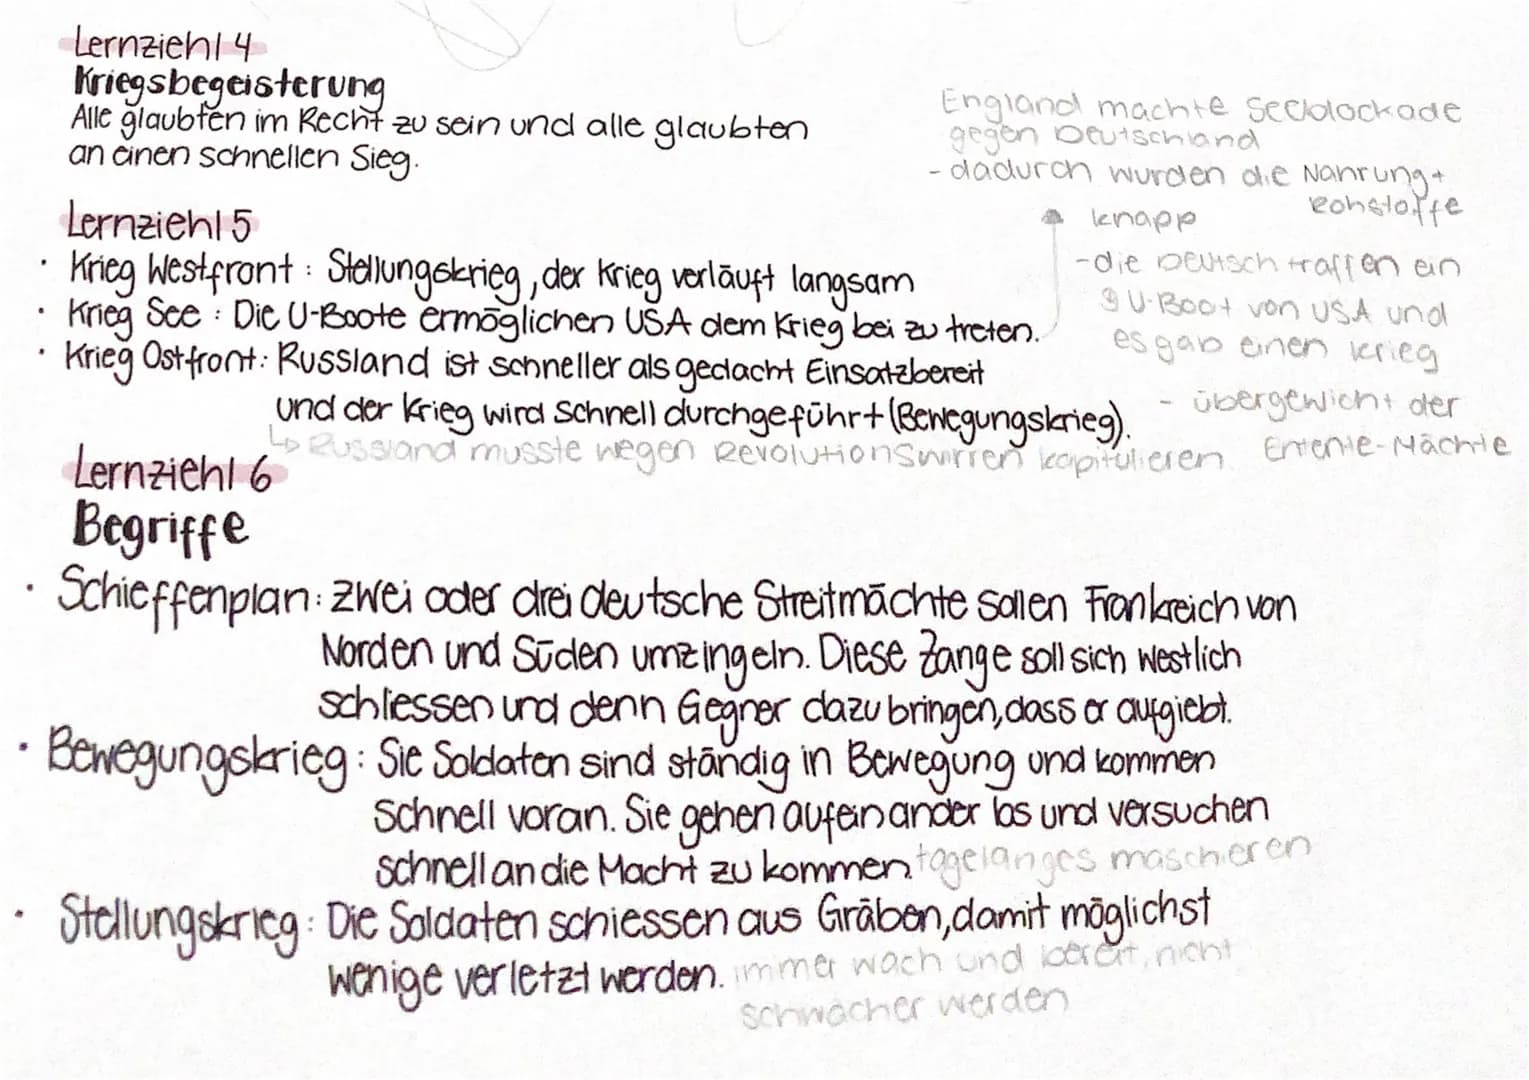 Lernziehl 4
Kriegsbegeisterung
Alle glaubten im Recht zu sein und alle glaubten
an einen schnellen Sieg.
England machte Seeblockade
gegen Deutschland
- dadurch wurden die Nahrung +
Rohstoffe
knapp
- die Deutsch traffen ein
U-Boot von USA und
es gab einen krieg
- übergewicht der
Entente-Mächte
Lernziehl 5
· Krieg Westfront : Stellungskrieg, der Krieg verläuft langsam
· Krieg See : Die U-Boote ermöglichen USA dem Krieg bei zu treten.
· Krieg Ostfront : Russland ist schneller als gedacht Einsatzbereit
und der Krieg wird Schnell durchgeführt (Bewegungskrieg).
↳ Russland musste wegen Revolutionswirren kapitulieren.
Lernziehl 6
Begriffe
· Schieffenplan : Zwei oder drei deutsche Streitmächte sollen Frankreich von
Norden und Süden umzingeln. Diese Zange soll sich Westlich
schliessen und denn Gegner dazu bringen, dass er aufgiebt.
· Bewegungskrieg : Sie Soldaten sind ständig in Bewegung und kommen
Schnell voran. Sie gehen aufeinander los und versuchen
schnell an die Macht zu kommen. tagelanges maschieren
· Stellungskrieg : Die Soldaten schiessen aus Gräben, damit möglichst
wenige verletzt werden. immer wach und bereit, nicht
schwächer werden